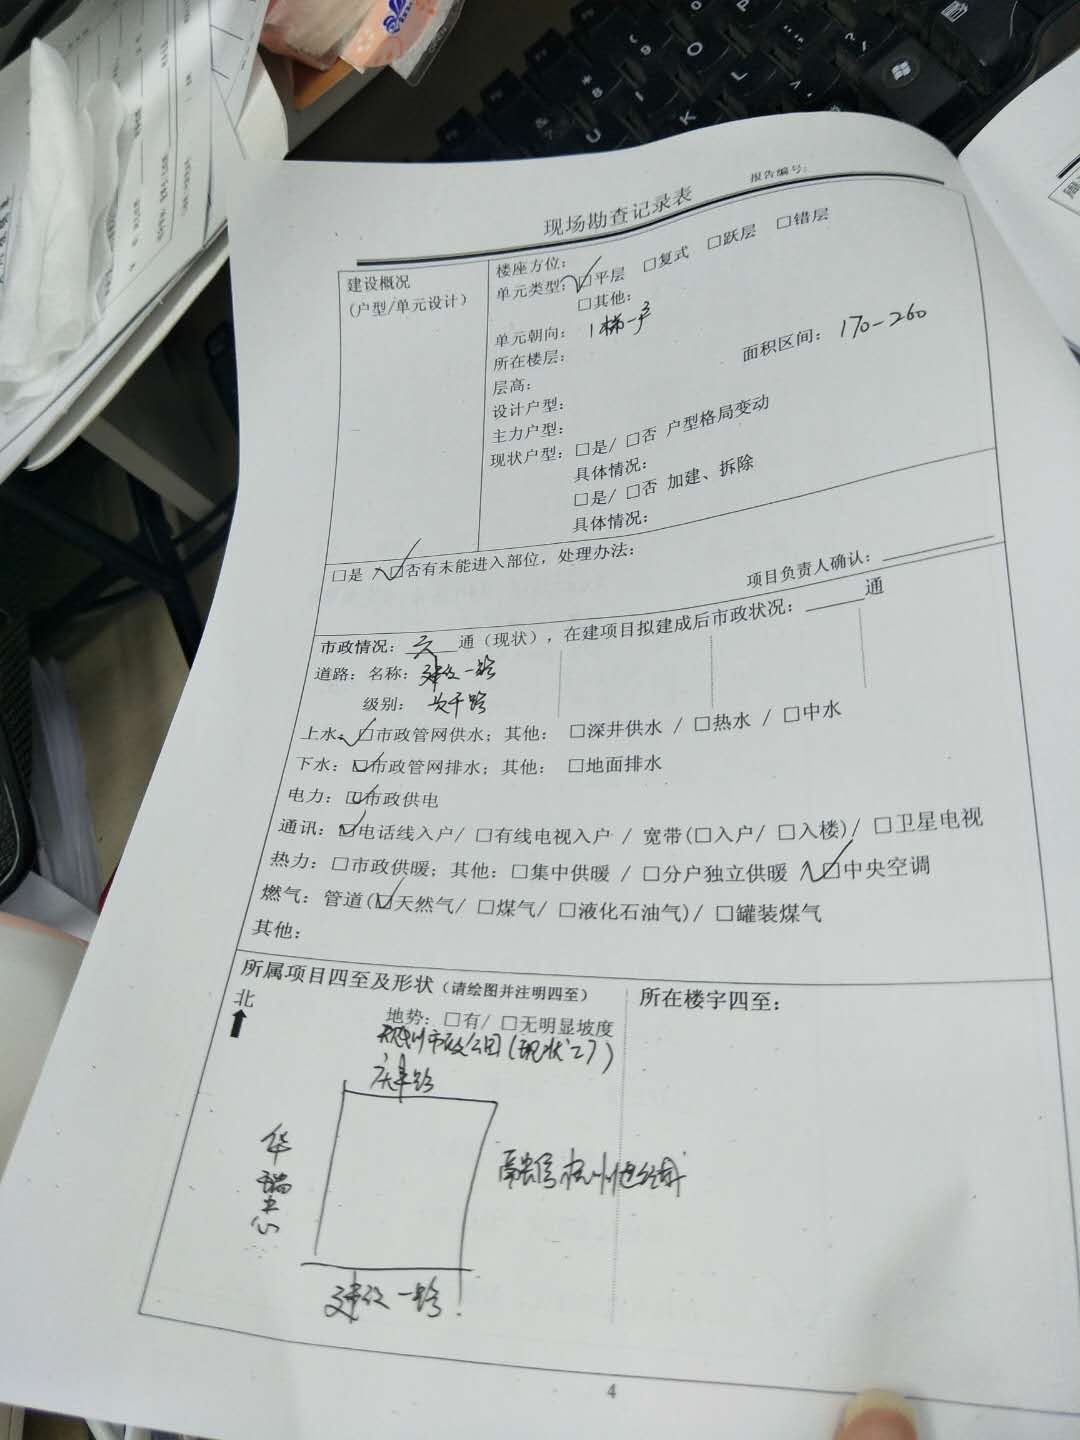 报告编号：
现场勘查记录表
建设概况
(户型/单元设计)
楼座方位：
单元类型：☑平层 □复式 □跃层 □错层
□其他：
单元朝向： 1梯一户
所在楼层：
面积区间： 170-260
层高：
设计户型：
主力户型：
现状户型：□是/ □否 户型格局变动
具体情况：
□是/ □否 加建、拆除
具体情况：
□是 / ☑否有未能进入部位，处理办法：
项目负责人确认：
市政情况： 六 通（现状），在建项目拟建成后市政状况：______通
道路：名称： 建设一路
级别： 次干路
上水：☑市政管网供水；其他： □深井供水 / □热水 / □中水
下水：☑市政管网排水；其他： □地面排水
电力：☑市政供电
通讯：☑电话线入户/ □有线电视入户 / 宽带(□入户/ □入楼)/ □卫星电视
热力：□市政供暖；其他：□集中供暖 / □分户独立供暖 / ☑中央空调
燃气：管道(☑天然气/ □煤气/ □液化石油气)/ □罐装煤气
其他：
所属项目四至及形状（请绘图并注明四至）
所在楼宇四至：
北
地势：□有/ □无明显坡度
市政公园(现状
路
华瑞中心
融信杭州世纪
建设一路
4